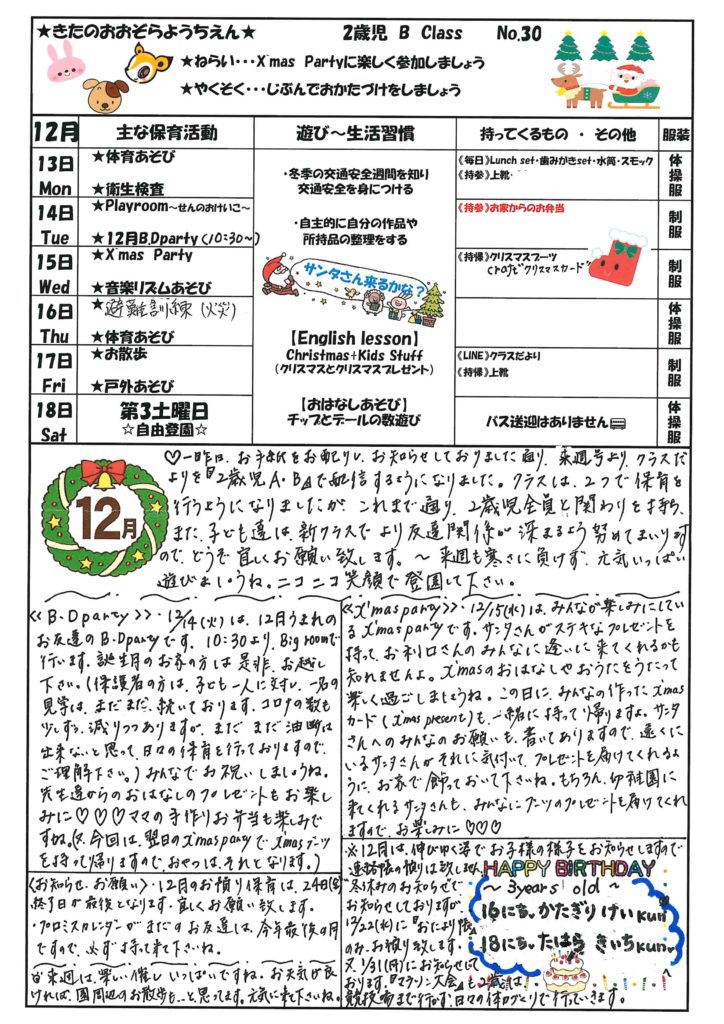 ★きたのおおぞらようちえん★ 2歳児 B Class No.30
★ねらい・・・X'mas Partyに楽しく参加しましょう
★やくそく・・・じぶんでおかたづけをしましょう
12月 主な保育活動 遊び～生活習慣 持ってくるもの ・ その他 服装
13日 Mon
★体育あそび
★衛生検査
《毎日》Lunch set・歯みがきset・水筒・スモック
《持参》上靴・
体操服
14日 Tue
★Playroom～せんのおけいこ～
★12月B.Dparty(10:30~)
《持参》お家からのお弁当
制服
15日 Wed
★X'mas Party
★音楽リズムあそび
《持帰》クリスマスブーツ
craft"クリスマスカード"
制服
16日 Thu
★避難訓練(火災)
★体育あそび
体操服
17日 Fri
★お散歩
★戸外あそび
《LINE》クラスだより
《持帰》上靴
制服
18日 Sat
第3土曜日
☆自由登園☆
バス送迎はありません
体操服
・冬季の交通安全週間を知り
交通安全を身につける
・自主的に自分の作品や
所持品の整理をする
サンタさん来るかな?
【English lesson】
Christmas+Kids Stuff
(クリスマスとクリスマスプレゼント)
【おはなしあそび】
チップとデールの数遊び
12月
♡一昨日、お手紙をお配りし、お知らせしておりました通り、来週号より、クラスだ
よりを『2歳児A・B』で配信するようになりました。クラスは、2つで保育を
行うようになりましたが、これまで通り、2歳児全員と関わりを持ち、
また、子ども達は新クラスでより友達関係が深まるよう努めてまいります
ので、どうぞ宜しくお願い致します。～来週も寒さに負けず、元気いっぱい
遊びましょうね。ニコニコ笑顔で登園して下さい。
《B・Dparty》・12/14(火)は、12月うまれの
お友達のB・Dpartyです。10:30より、Big roomで
行います。誕生月のお家の方は是非、お越し
下さい。(保護者の方は、子ども一人に対し、一名の
見学は、まだまだ、続いております。コロナの数も
少しずつ、減りつつありますが、まだまだ油断は
出来ないと思って、日々の保育を行っておりますので、
ご理解下さい。)みんなでお祝いしましょうね。
先生達からのおはなしのプレゼントもお楽し
みに♡♡♡ママの手作りお弁当も楽しみで
すね。(又、今回は、翌日のX'maspartyでX'masブーツ
を持って帰りますので、おやつは、それとなります。)
《X'masparty》・12/15(水)は、みんなが楽しみにしてい
るX'maspartyです。サンタさんがステキなプレゼントを
持って、お利口さんのみんなに逢いに来てくれるかも
知れませんよ。X'masのおはなしやおうたをうたって
楽しく過ごしましょうね。この日に、みんなの作ったX'mas
カード(X'mas present)も、一緒に持って帰りますよ。サンタ
さんへのみんなのお願いも、書いてありますので、遠くに
いるサンタさんがそれに気付いて、プレゼントを届けてくれるよ
うに、お家で飾っておいて下さいね。もちろん、幼稚園に
来てくれるサンタさんも、みんなにブーツのプレゼントを届けてくれ
ますので、お楽しみに♡♡♡
《お知らせ・お願い》・12月のお預り保育は、24日(金)
終了日が最後となります。宜しくお願い致します。
・プロミスカレンダーがまだのお友達は、今年最後の月
ですので、必ず持って来て下さいね。
来週は、楽しい催しいっぱいですね。お天気が良
ければ、園周辺のお散歩も...と思ってます。元気に来て下さいね。
※12月は、伸びゆく姿でお子様の様子をお知らせしますので
連絡帳の預りは致しません
冬休みのお知らせで
お知らせしておりますが
12/22(水)に『おたより帳』
のみ、お預り致します。
又、1/31(月)にお知らせして
おります、『マラソン大会』も2歳児は
競技場まで行かず、日々の体力づくりで行っていきます。
HAPPY BIRTHDAY
～3years old～
16にち♥かたぎり けいkun
18にち♥たはら きいちkun♥